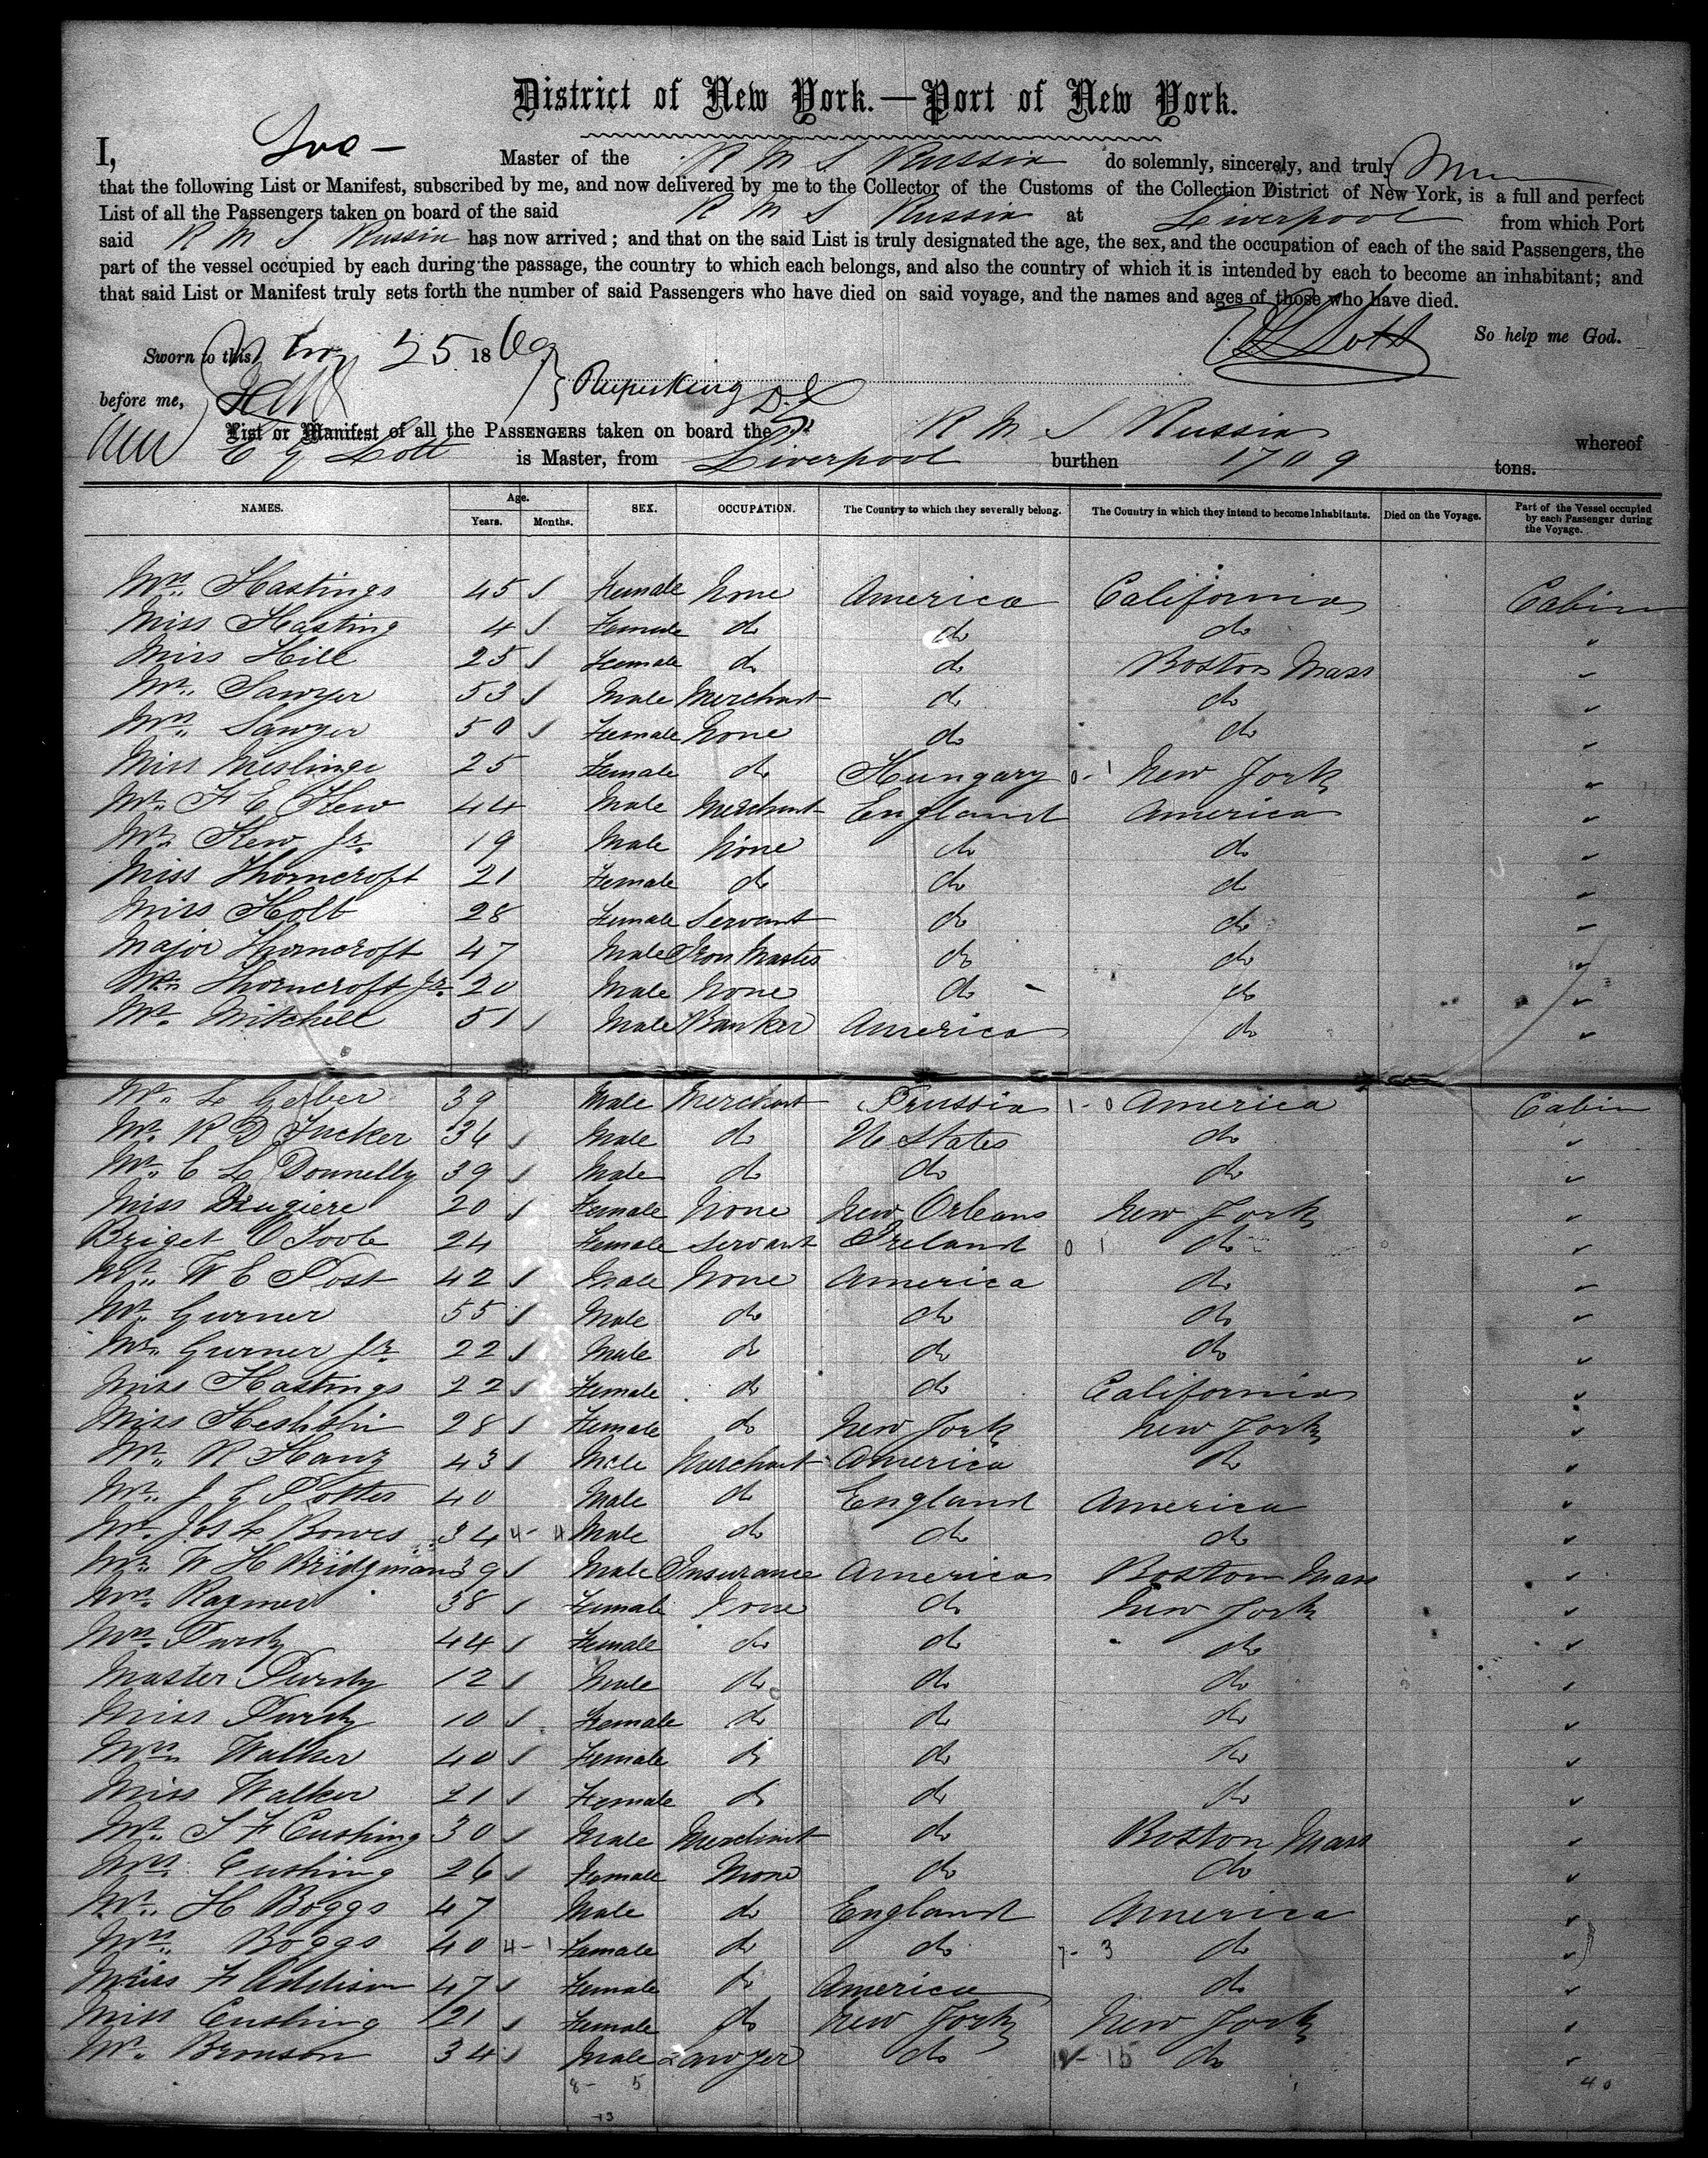 District of New York.—Port of New York.
I, Master of the R M S Russia do solemnly, sincerely, and truly
that the following List or Manifest, subscribed by me, and now delivered by me to the Collector of the Customs of the Collection District of New York, is a full and perfect
List of all the Passengers taken on board of the said R M S Russia at Liverpool from which Port
said R M S Russia has now arrived; and that on the said List is truly designated the age, the sex, and the occupation of each of the said Passengers, the
part of the vessel occupied by each during the passage, the country to which each belongs, and also the country of which it is intended by each to become an inhabitant; and
that said List or Manifest truly sets forth the number of said Passengers who have died on said voyage, and the names and ages of those who have died.
So help me God.
Sworn to this 25 1869
before me,
List or Manifest of all the PASSENGERS taken on board the R M S Russia whereof
E G Lott is Master, from Liverpool burthen 1709 tons.
NAMES. Age. Years. Months. SEX. OCCUPATION. The Country to which they severally belong. The Country in which they intend to become Inhabitants. Died on the Voyage. Part of the Vessel occupied by each Passenger during the Voyage.
Mrs. Hastings 45 Female None America California Cabin
Miss Hasting 4 Female do do do
Miss Hill 25 Female do do Boston Mass
Mr. Sawyer 53 Male Merchant do do
Mrs. Sawyer 50 Female None do do
Miss 25 Female do Hungary 0-1 New York
Mr. F E Kew 44 Male Merchant England America
Mr. Kew Jr. 19 Male None do do
Miss Thorncroft 21 Female do do do
Miss Holt 28 Female Servant do do
Major Thorncroft 47 Male Iron Master do do
Mr. Thorncroft Jr. 20 Male None do do
Mr. Mitchell 51 Male Banker America do
Mr. L Gerber 39 Male Merchant Prussia 1-0 America Cabin
Mr. R D Tucker 36 Male do U States do
Mr. E L Donnelly 39 Male do do do
Miss Brugiere 20 Female None New Orleans New York
Briget O Toole 24 Female Servant Ireland 0 1 do
Mr. W E Post 42 Male None America do
Mr. Gurner 55 Male do do do
Mr. Gurner Jr. 22 Male do do do
Miss Hastings 22 Female do do California
Miss 28 Female do New York New York
Mr. R Hanz 43 Male Merchant America do
Mr. J G Potter 40 Male do England America
Mr. Jos L Bowes 34 4-4 Male do do do
Mr. W H Bridgman 39 Male Insurance America Boston Mass
Mrs. Raymer 38 Female None do New York
Mrs. Purdy 44 Female do do do
Master Purdy 12 Male do do do
Miss Purdy 10 Female do do do
Mrs. Walker 40 Female do do do
Miss Walker 21 Female do do do
Mr. S F Cushing 30 Male Merchant do Boston Mass
Mrs. Cushing 26 Female None do do
Mr. H Boggs 47 Male do England America
Mrs. Boggs 40 4-1 Female do do 7-3 do
Miss F Addison 47 Female do America do
Miss Cushing 21 Female do New York New York
Mr. Bronson 34 Male Lawyer do 15 do
8- 5 40
13